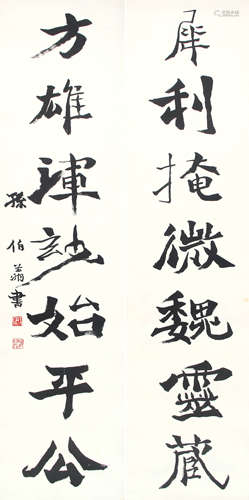 犀利掩微魏靈藏
方雄渾訬始平公
孫伯翁書